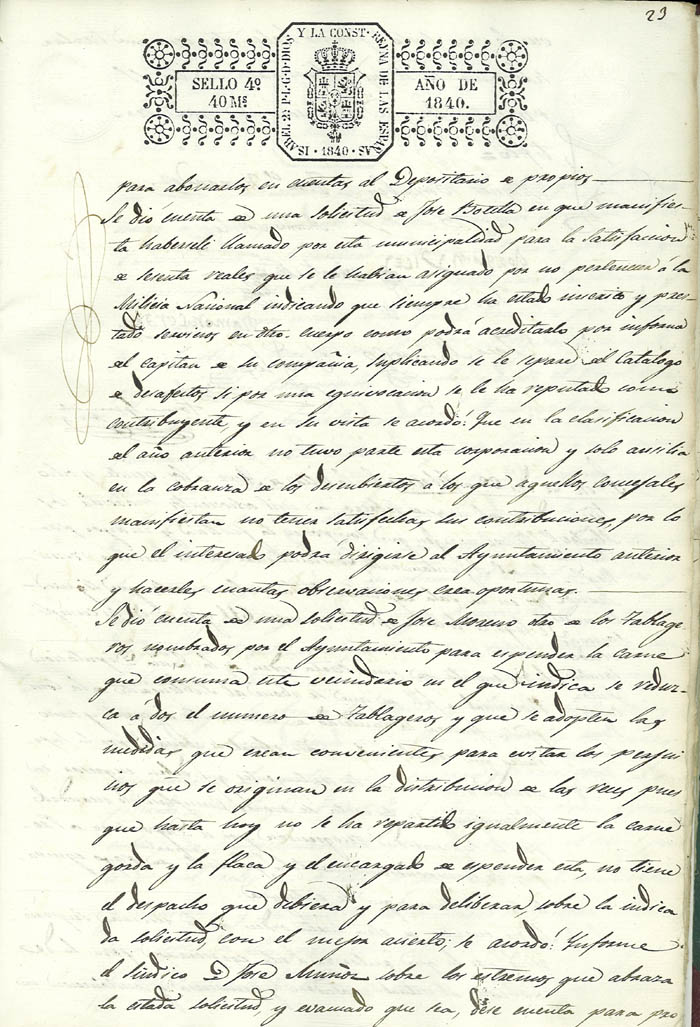 23
ISABEL 2ª P.L.G.D.DIOS Y LA CONST. REYNA DE LAS ESPAÑAS
1840
SELLO 4º
40 Ms
AÑO DE
1840.
para abonarlos en cuentas al Depositario de propios
Se dió cuenta de una solicitud de Jose Botella en que manifies-
ta habersele llamado por esta municipalidad para la satisfacion
de sesenta reales que se le habian asignado por no pertenecer á la
Milicia Nacional indicando que siempre ha estado inscrito y pres-
tado servicios en otro cuerpo como podrá acreditarlo por informe
del capitan de su compañia, suplicando se le separe del Catalogo
de desafectos si por una equivocacion se le ha reputado como
contribuyente, y en su vista se acordó: Que en la clasificacion
del año anterior no tuvo parte esta corporacion y solo ausilia
en la cobranza de los descubiertos á los que aquellos concejales
manifiestan no tener satisfechas sus contribuciones, por lo
que el interesado podrá dirigirse al Ayuntamiento anterior
y hacerles cuantas observaciones crea oportunas.
Se dió cuenta de una solicitud de Jose Moreno otro de los Tablage
ros nombrados por el Ayuntamiento para espender la carne
que consuma este vecindario en el que indica se reduz-
ca á dos el numero de Tablageros y que se adopten las
medidas que crean convenientes para evitar los perjui
cios que se originan en la distribucion de las reses pues
que hasta hoy no se ha repartido igualmente la carne
gorda y la flaca y el encargado de espender esta, no tiene
el despacho que debiera y para deliberar sobre la indica
da solicitud, con el mejor acierto; se acordó: Informe
el sindico D. Jose Muñoz sobre los estremos que abraza
la citada solicitud, y evacuado que sea, dese cuenta para pro